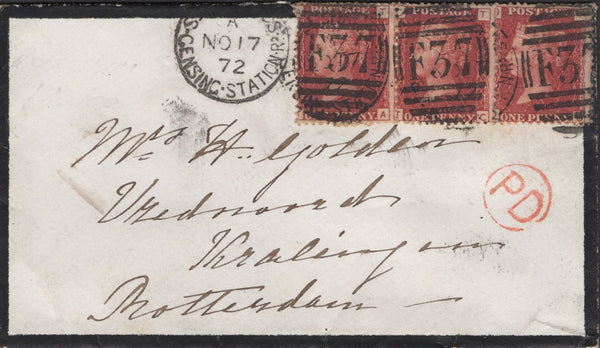 POSTAGE POSTAGE POSTAGE
F37 F37 F37
A
NO 17
72
S. KENSING. STATION.
ONE PENNY ONE PENNY
Mrs H. Golden
Vredenoord
Kralingen
Rotterdam —
PD